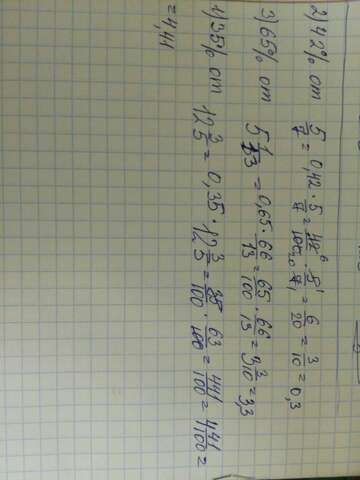 2) 42% от 5/7 = 0,42 · 5/7 = 42/100 · 5/7 = 6/20 = 3/10 = 0,3
3) 65% от 5 1/13 = 0,65 · 66/13 = 65/100 · 66/13 = 3 3/10 = 3,3
4) 35% от 12 3/5 = 0,35 · 12 3/5 = 35/100 · 63/5 = 441/100 = 4 41/100 =
= 4,41